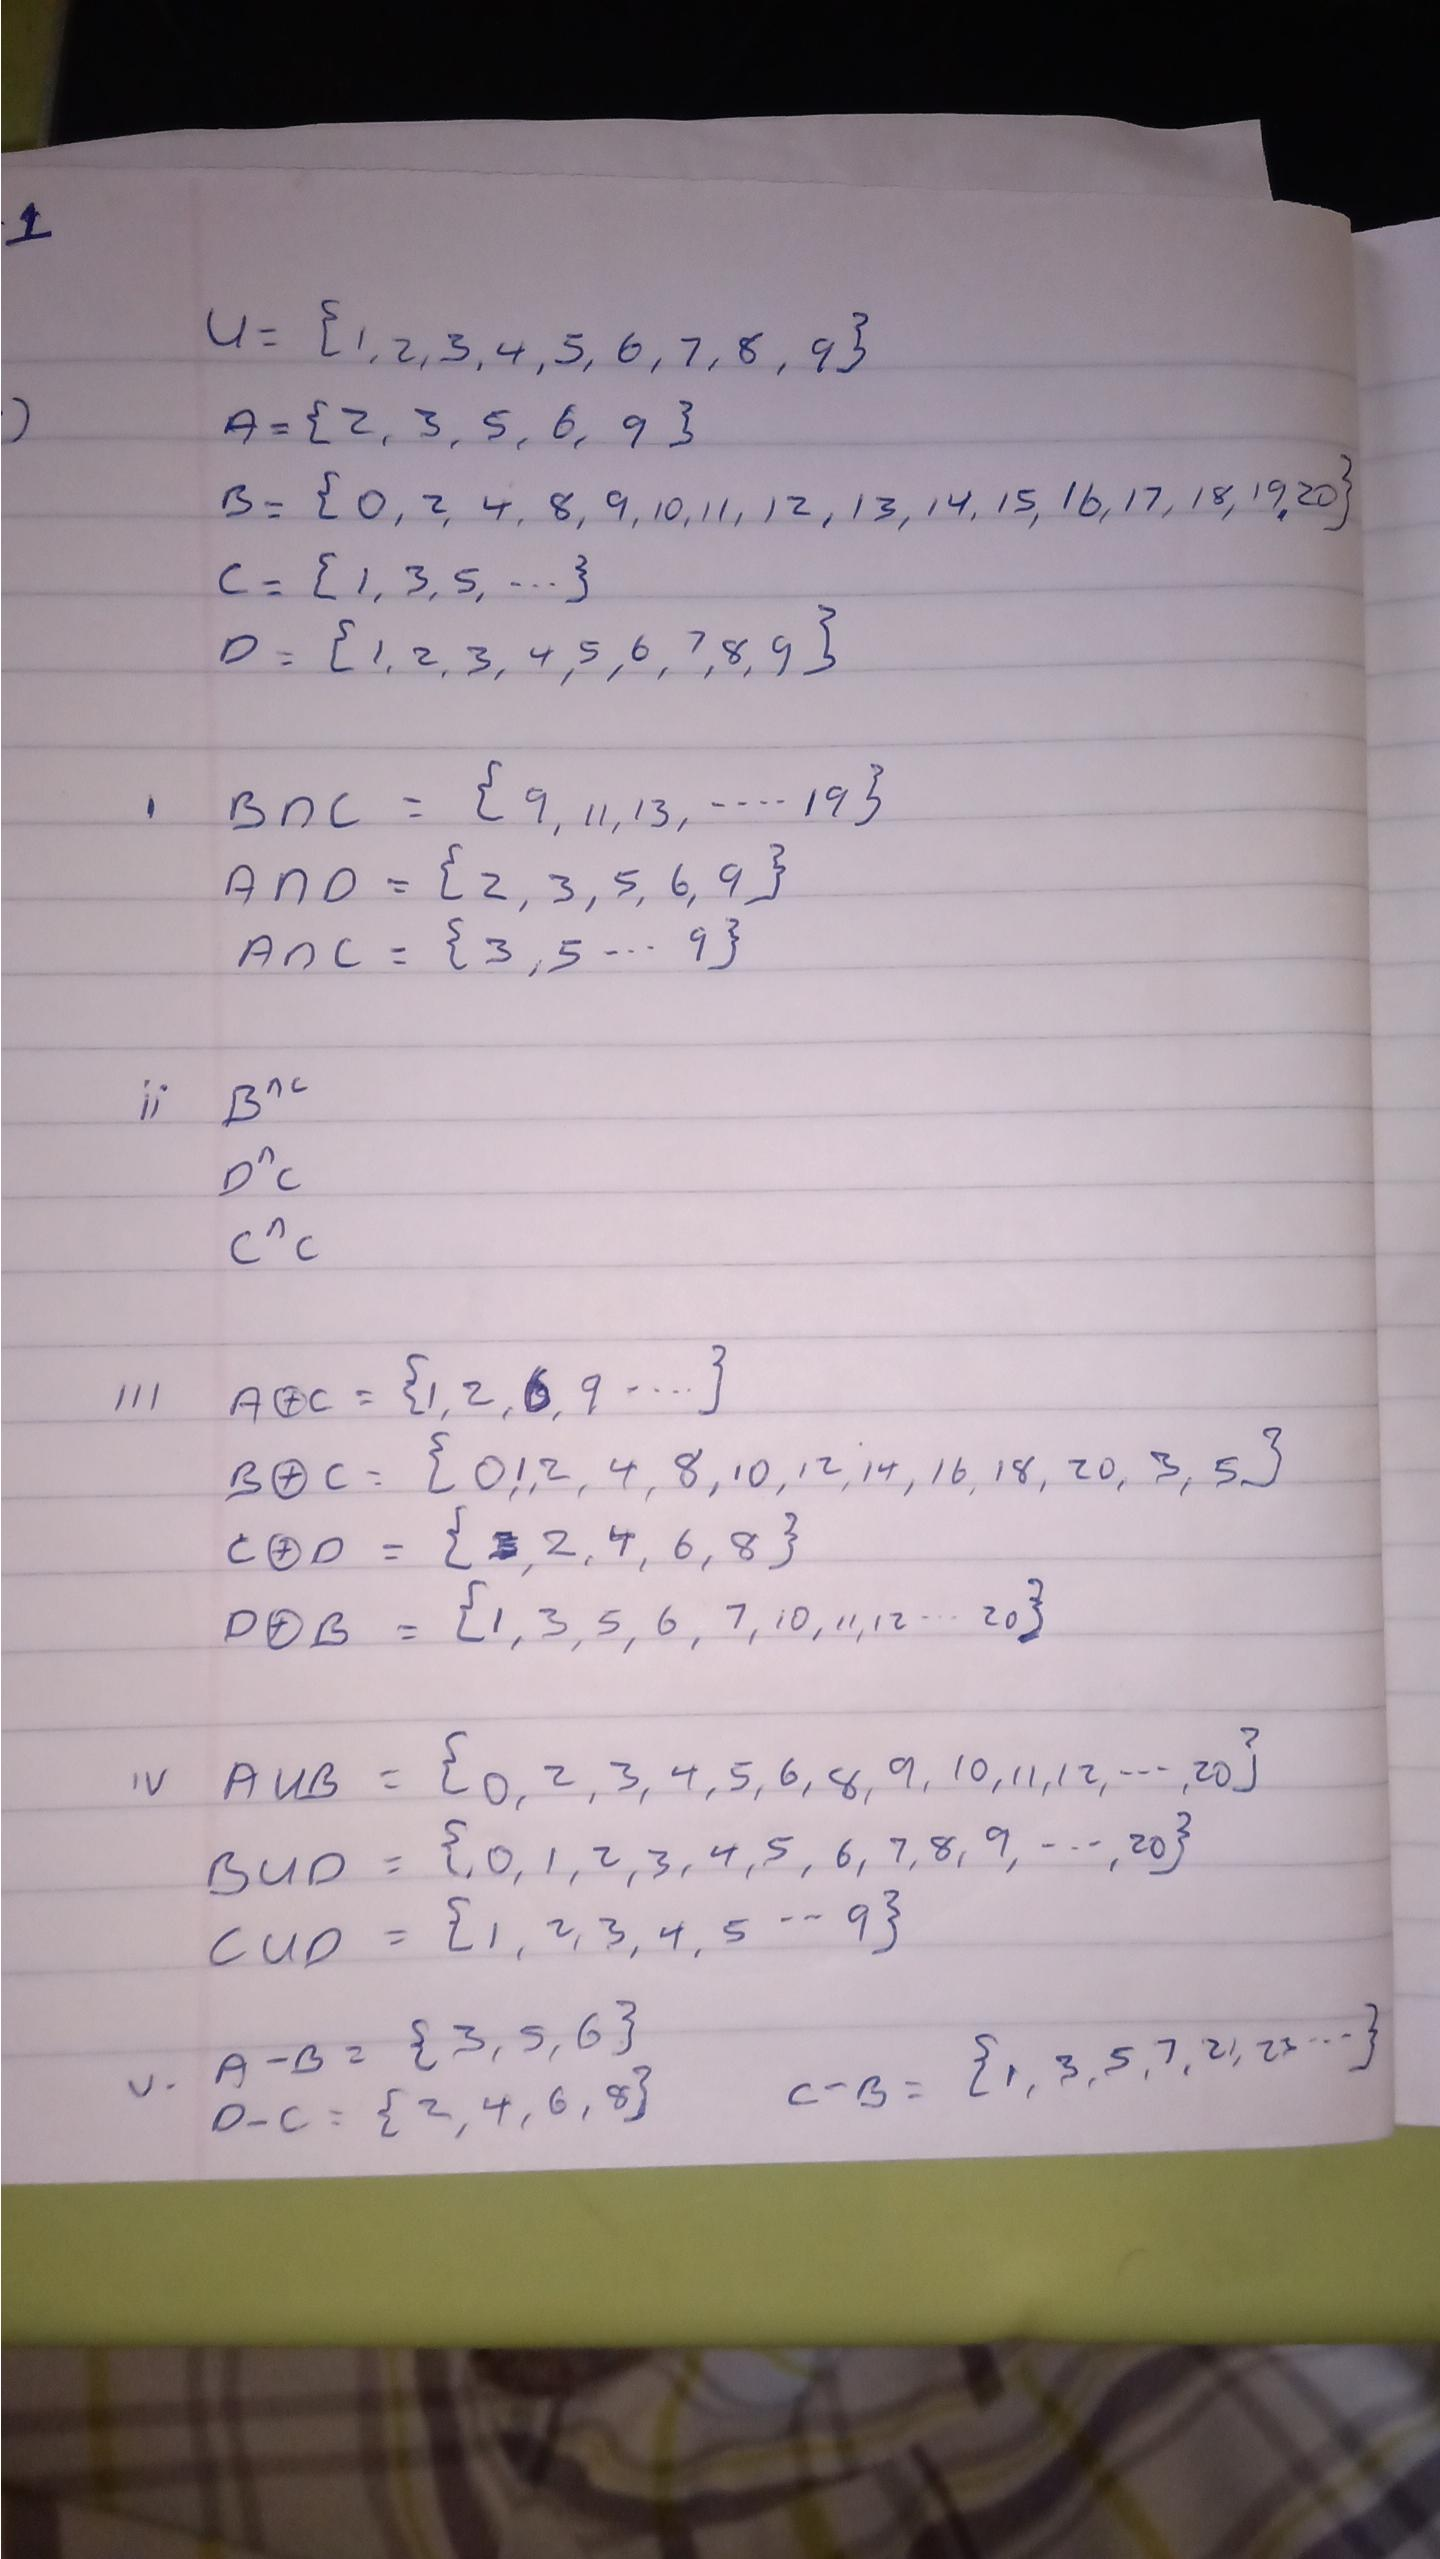 1
U = {1, 2, 3, 4, 5, 6, 7, 8, 9}
) A = {2, 3, 5, 6, 9}
B = {0, 2, 4, 8, 9, 10, 11, 12, 13, 14, 15, 16, 17, 18, 19, 20}
C = {1, 3, 5, ...}
D = {1, 2, 3, 4, 5, 6, 7, 8, 9}
i B∩C = {9, 11, 13, .... 19}
A∩D = {2, 3, 5, 6, 9}
A∩C = {3, 5 ... 9}
ii B^∩c
D^∩c
C^∩c
iii A⊕C = {1, 2, 6, 9 ....}
B⊕C = {0, 1, 2, 4, 8, 10, 12, 14, 16, 18, 20, 3, 5}
C⊕D = { , 2, 4, 6, 8}
D⊕B = {1, 3, 5, 6, 7, 10, 11, 12 ... 20}
iv A∪B = {0, 2, 3, 4, 5, 6, 8, 9, 10, 11, 12, ..., 20}
B∪D = {0, 1, 2, 3, 4, 5, 6, 7, 8, 9, ..., 20}
C∪D = {1, 2, 3, 4, 5 ... 9}
v. A-B = {3, 5, 6} C-B = {1, 3, 5, 7, 21, 23 ...}
D-C = {2, 4, 6, 8}